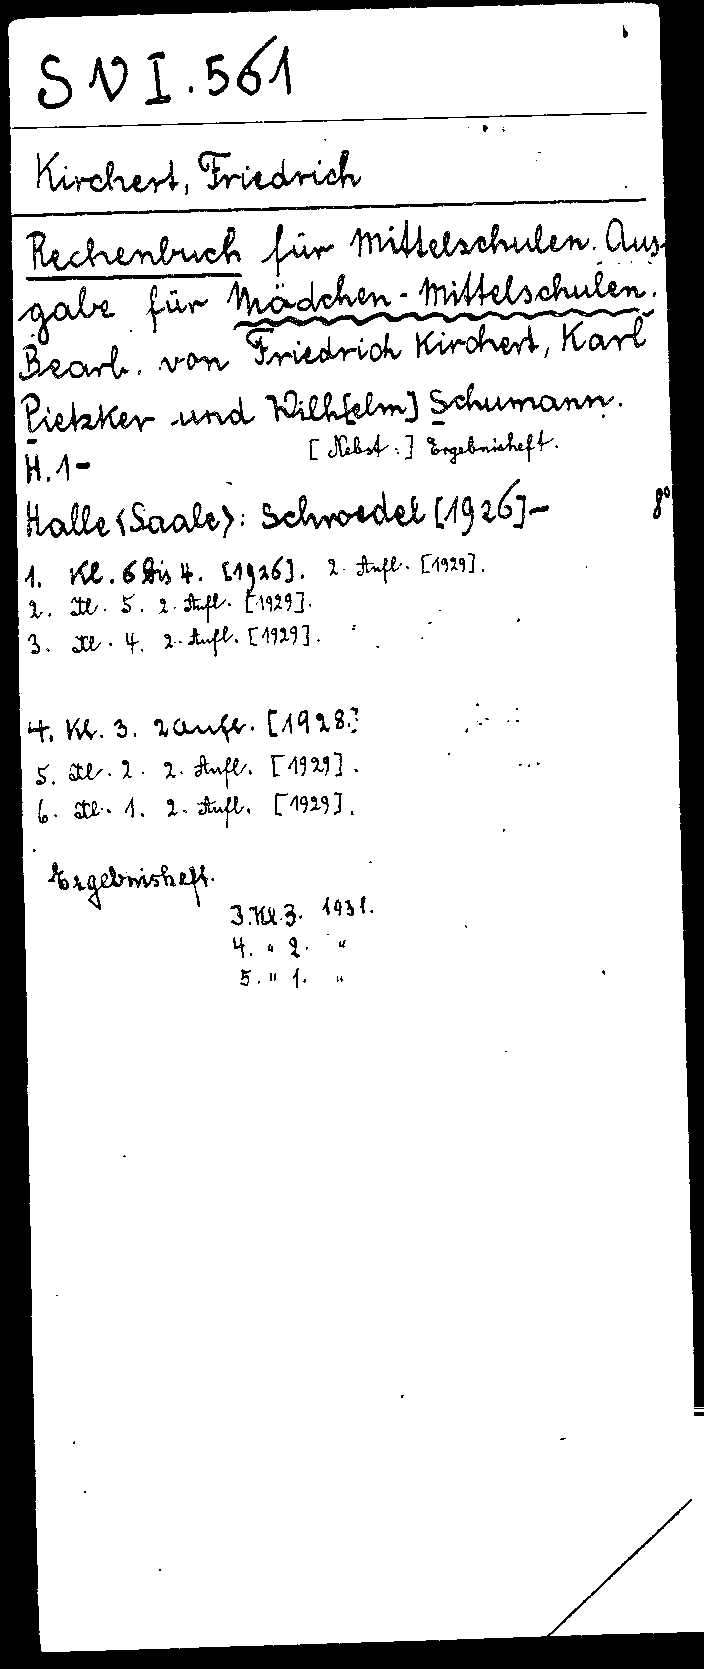 S N I. 561
Kirchert, Friedrich
Rechenbuch für Mittelschulen. Aus-
gabe für Mädchen-Mittelschulen.
Bearb. von Friedrich Kirchert, Karl
Pietzker und Wilh[elm] Schumann.
H. 1- [Nebst:] Ergebnisheft.
Halle <Saale>: Schroedel [1926]- 8°
1. Kl. 6 bis 4. [1926]. 2. Aufl. [1929].
2. Kl. 5. 2. Aufl. [1929].
3. Kl. 4. 2. Aufl. [1929].
4. Kl. 3. 2 Aufl. [1928.]
5. Kl. 2. 2. Aufl. [1929].
6. Kl. 1. 2. Aufl. [1929].
Ergebnisheft.
3. Kl. 3. 1931.
4. " 2. "
5. " 1. "